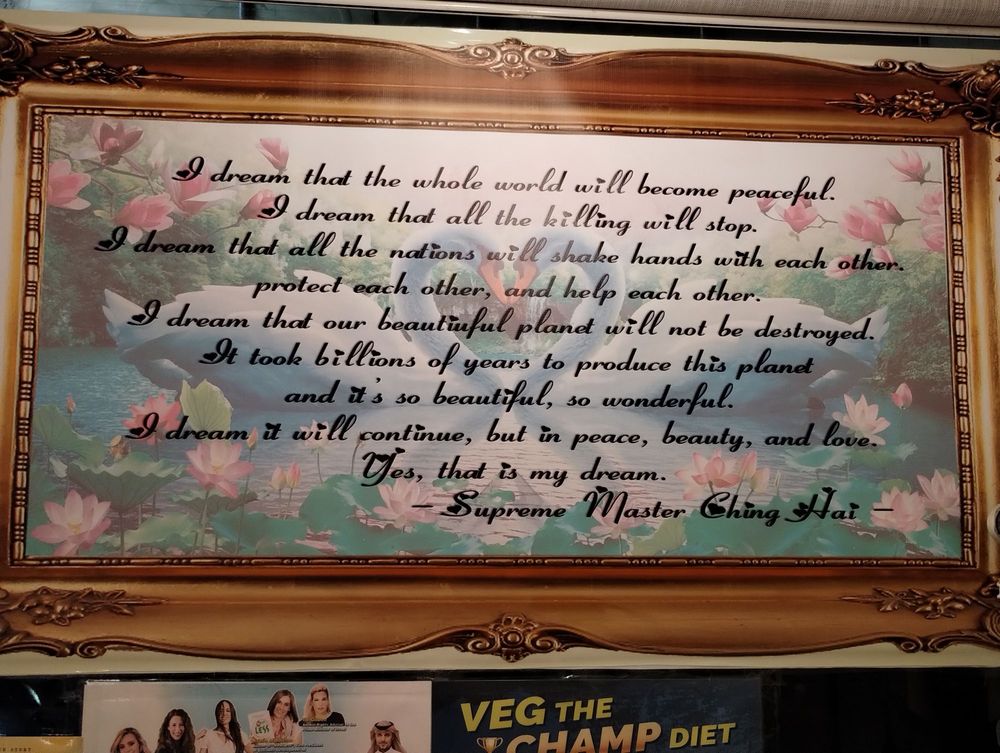 I dream that the whole world will become peaceful.
I dream that all the killing will stop.
I dream that all the nations will shake hands with each other.
protect each other, and help each other.
I dream that our beautiuful planet will not be destroyed.
It took billions of years to produce this planet
and it's so beautiful, so wonderful.
I dream it will continue, but in peace, beauty, and love.
Yes, that is my dream.
– Supreme Master Ching Hai –
LESS
VEG THE
CHAMP DIET